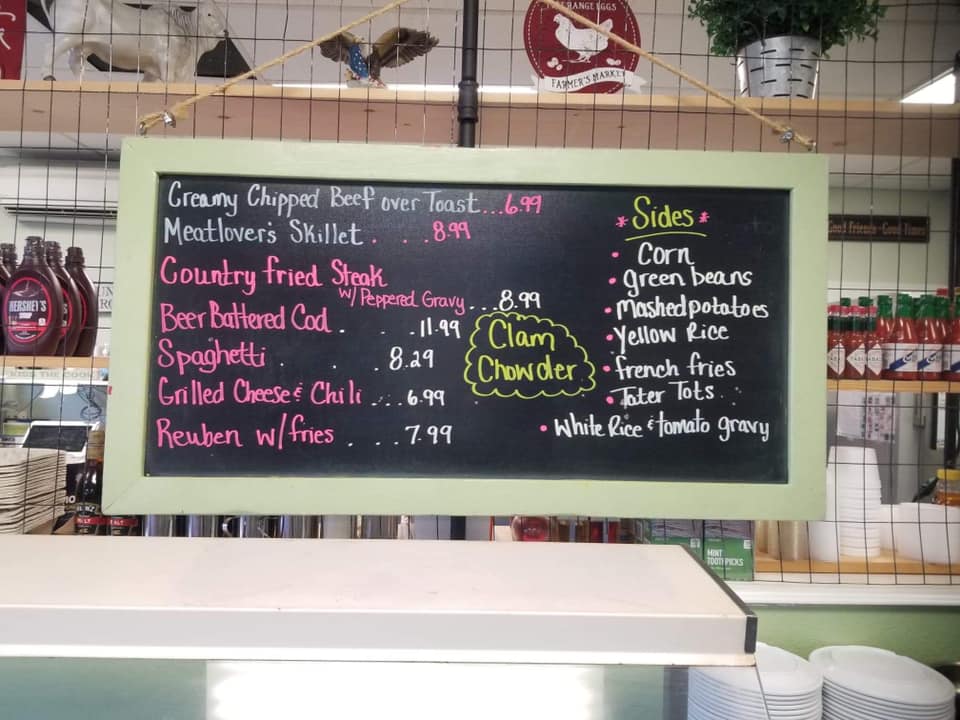 FREE RANGE EGGS
FARMER'S MARKET
Creamy Chipped Beef over Toast...6.99
Meatlover's Skillet. . . .8.99
Country fried Steak
w/ Peppered Gravy...8.99
Beer Battered Cod . . .11.99
Spaghetti . . .8.29
Grilled Cheese & Chili ...6.99
Reuben w/fries . ...7.99
Clam
Chowder
*Sides*
• Corn
• green beans
• Mashed potatoes
• Yellow Rice
• french fries
• Tater Tots..
• White Rice & tomato gravy
Good Friends - Good Times
HERSHEY'S
SYRUP
KISS THE COOK
MINT
TOOTHPICKS